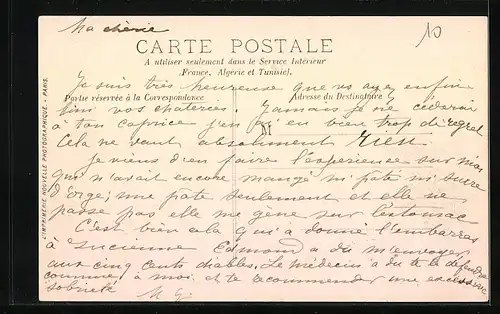 Ma chérie
10
CARTE POSTALE
A utiliser seulement dans le Service Intérieur
(France, Algérie et Tunisie).
Je suis très heureuse que vous ayez enfin
Partie réservée à la Correspondance
Adresse du Destinataire
fini vos chateries. Jamais je ne cèderais
à ton caprice j'en ai eu bien trop de regret
M
Cela ne vaut absolument rien
Je viens d'en faire l'expérience sur moi
qui n'avait encore mangé ni pâté ni sucre
d'orge; une pâte seulement et elle ne
passe pas elle me gêne sur l'estomac
C'est bien cela qui a donné l'embarras
à Lucienne Edmond a dû m'envoyer
aux cinq cents diables. Le médecin a dû te le défendre
comme à moi et te recommander une excessive
sobriété
L'IMPRIMERIE NOUVELLE PHOTOGRAPHIQUE. - PARIS.